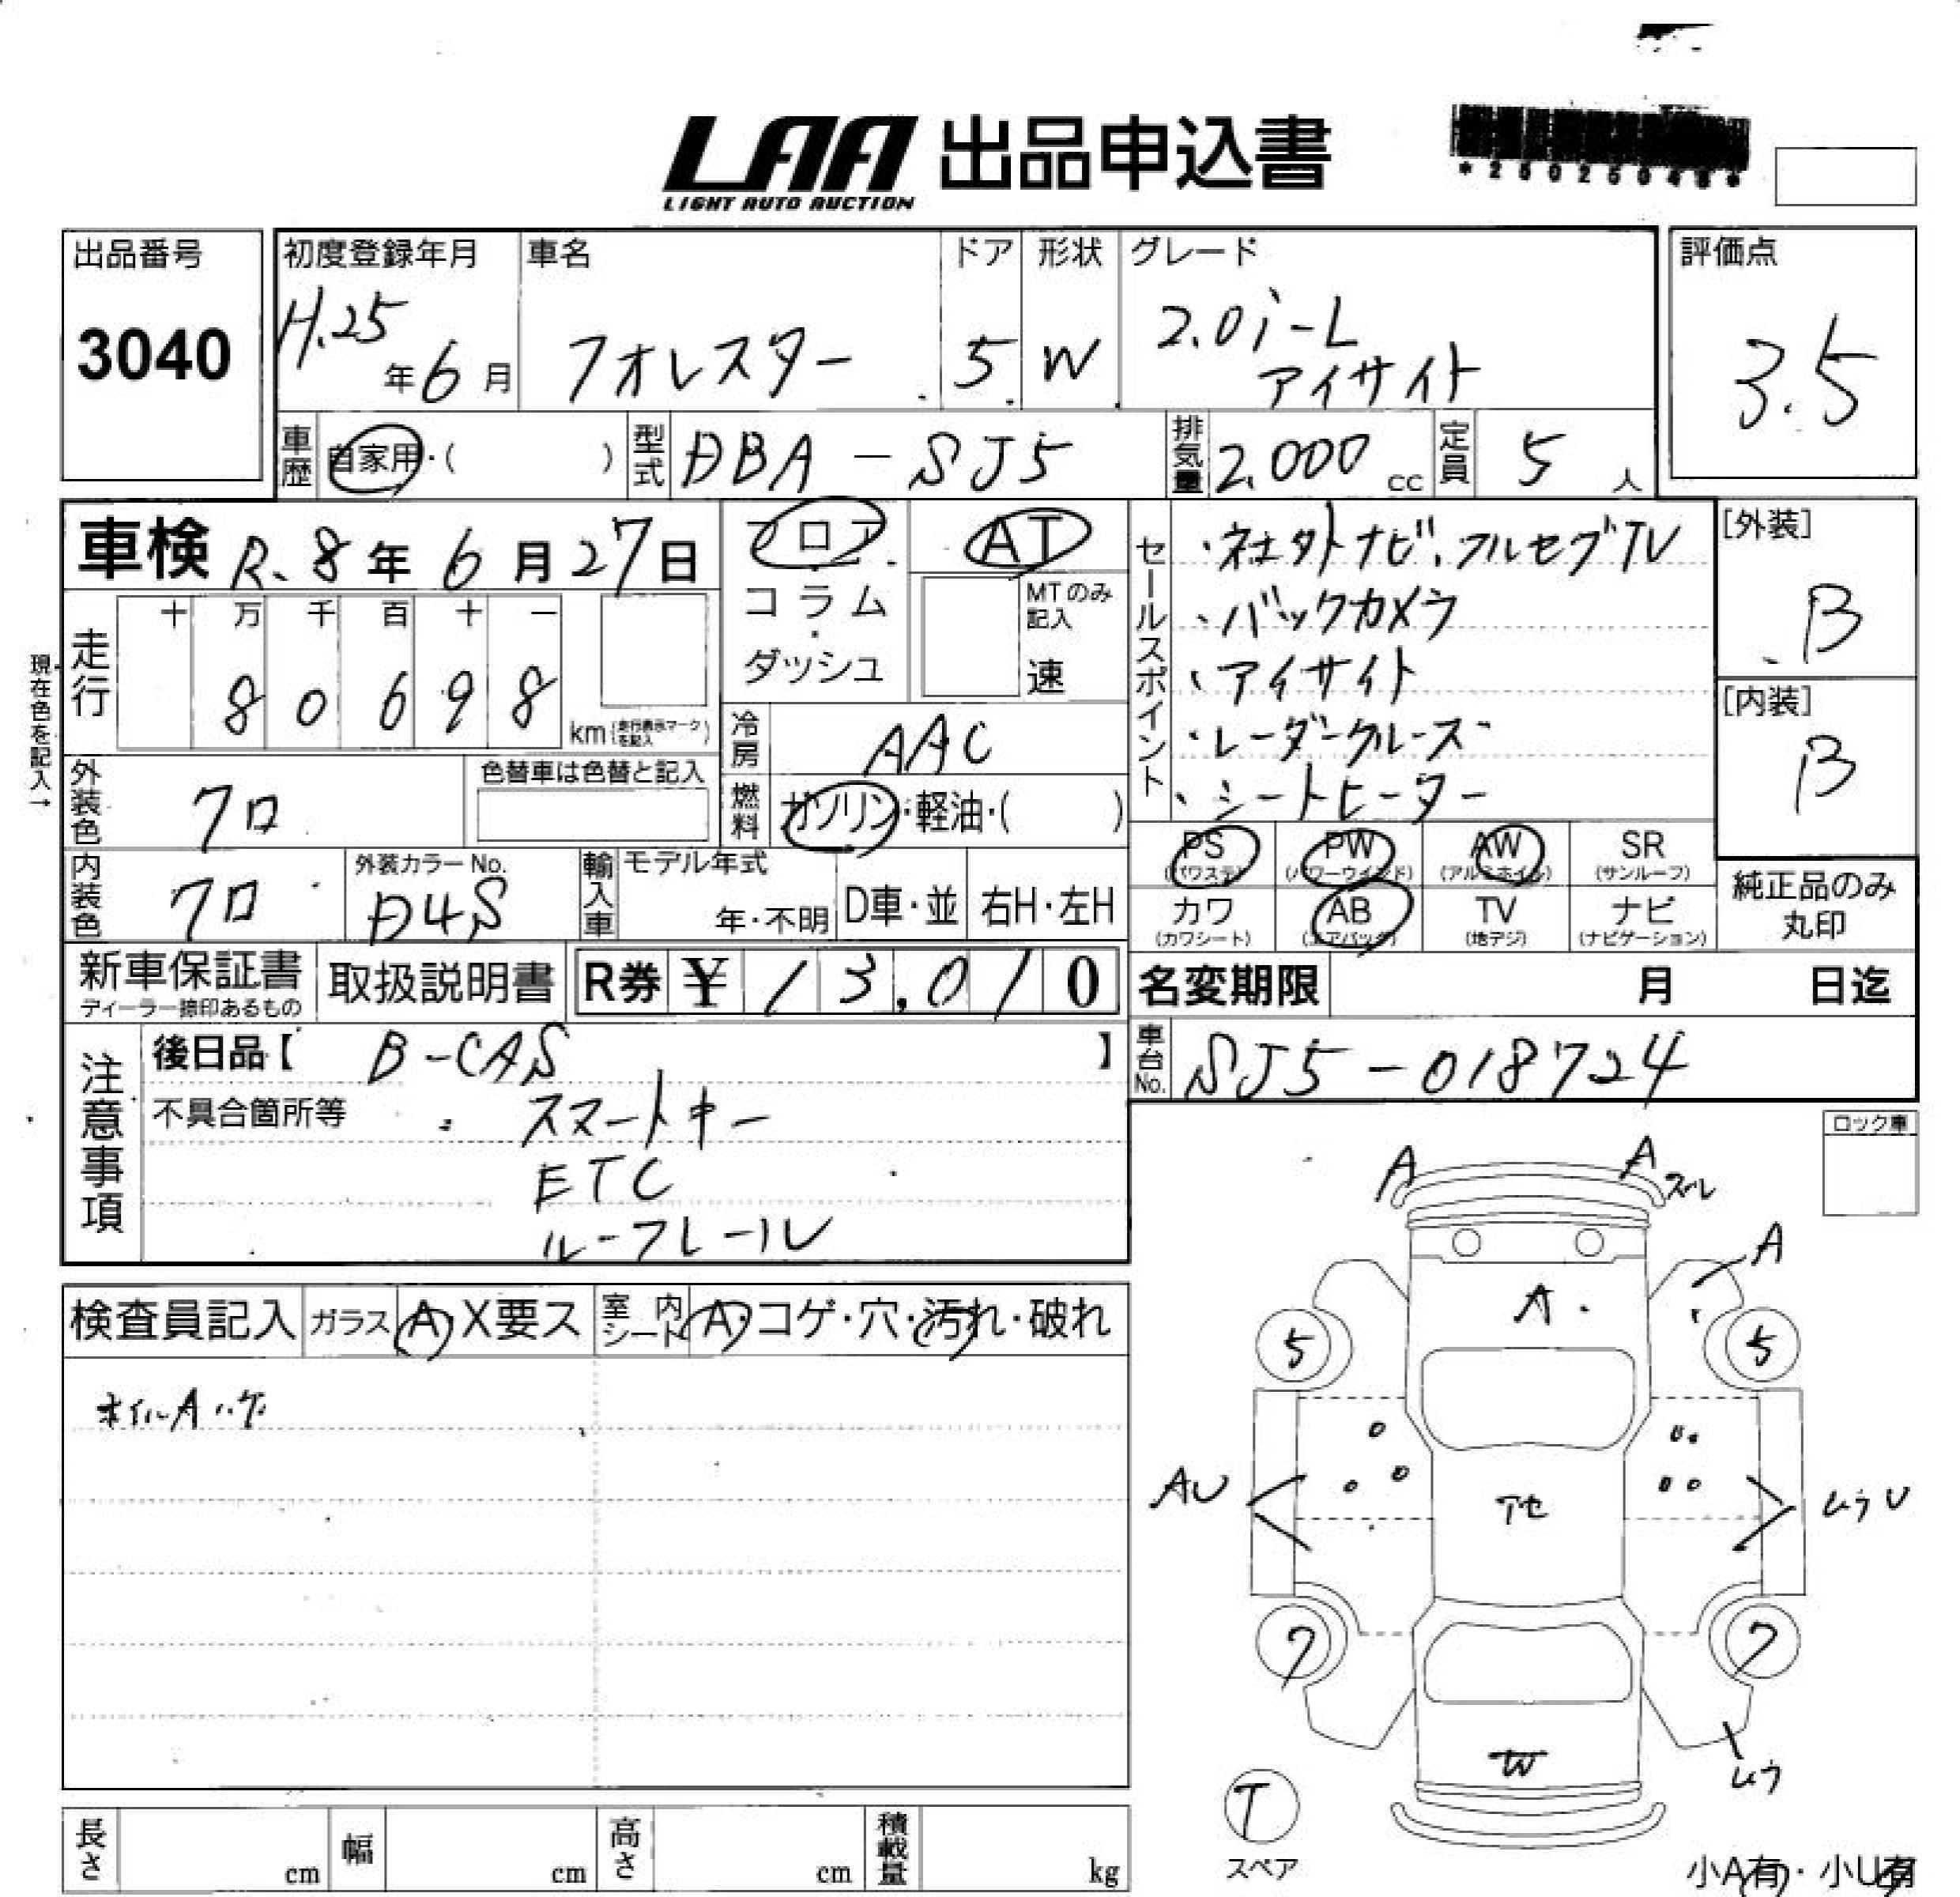 LAA 出品申込書
LIGHT AUTO AUCTION
出品番号
3040
初度登録年月
H.25年6月
車名
フォレスター
ドア
5
形状
W
グレード
2.0i-L
アイサイト
評価点
3.5
車歴 自家用・( )
型式 DBA-SJ5
排気量 2,000cc
定員 5人
車検 R.8年6月27日
フロア
コラム
・
ダッシュ
AT
MTのみ記入
速
走行
十 万 千 百 十 一
8 0 6 9 8
km(走行表示マークを記入)
現在色を記入→
冷房 AAC
燃料 ガソリン・軽油・( )
外装色 クロ
色替車は色替と記入
内装色 クロ
外装カラーNo.
D4S
輸入車 モデル年式
年・不明 D車・並 右H・左H
セールスポイント
・社外ナビ、フルセグTV
・バックカメラ
・アイサイト
・レーダークルーズ
・シートヒーター
[外装]
B
[内装]
B
PS (パワステ)
PW (パワーウインド)
AW (アルミホイル)
SR (サンルーフ)
カワ (カワシート)
AB (エアバック)
TV (地デジ)
ナビ (ナビゲーション)
純正品のみ
丸印
新車保証書
ディーラー捺印あるもの
取扱説明書
R券 ¥13,010
名変期限 月 日迄
車台No. SJ5-018724
注意事項
後日品【 B-CAS 】
不具合箇所等 スマートキー
ETC
ルーフレール
ロック車
検査員記入 ガラス A・X要ス 室内シート A・コゲ・穴・汚れ・破れ
ホイルAハゲ
A
A
スレ
A
A
5
5
AU
アセ
ムラU
7
7
W
ムラ
T
スペア
小A有・小U有
長さ cm
幅 cm
高さ cm
積載量 kg